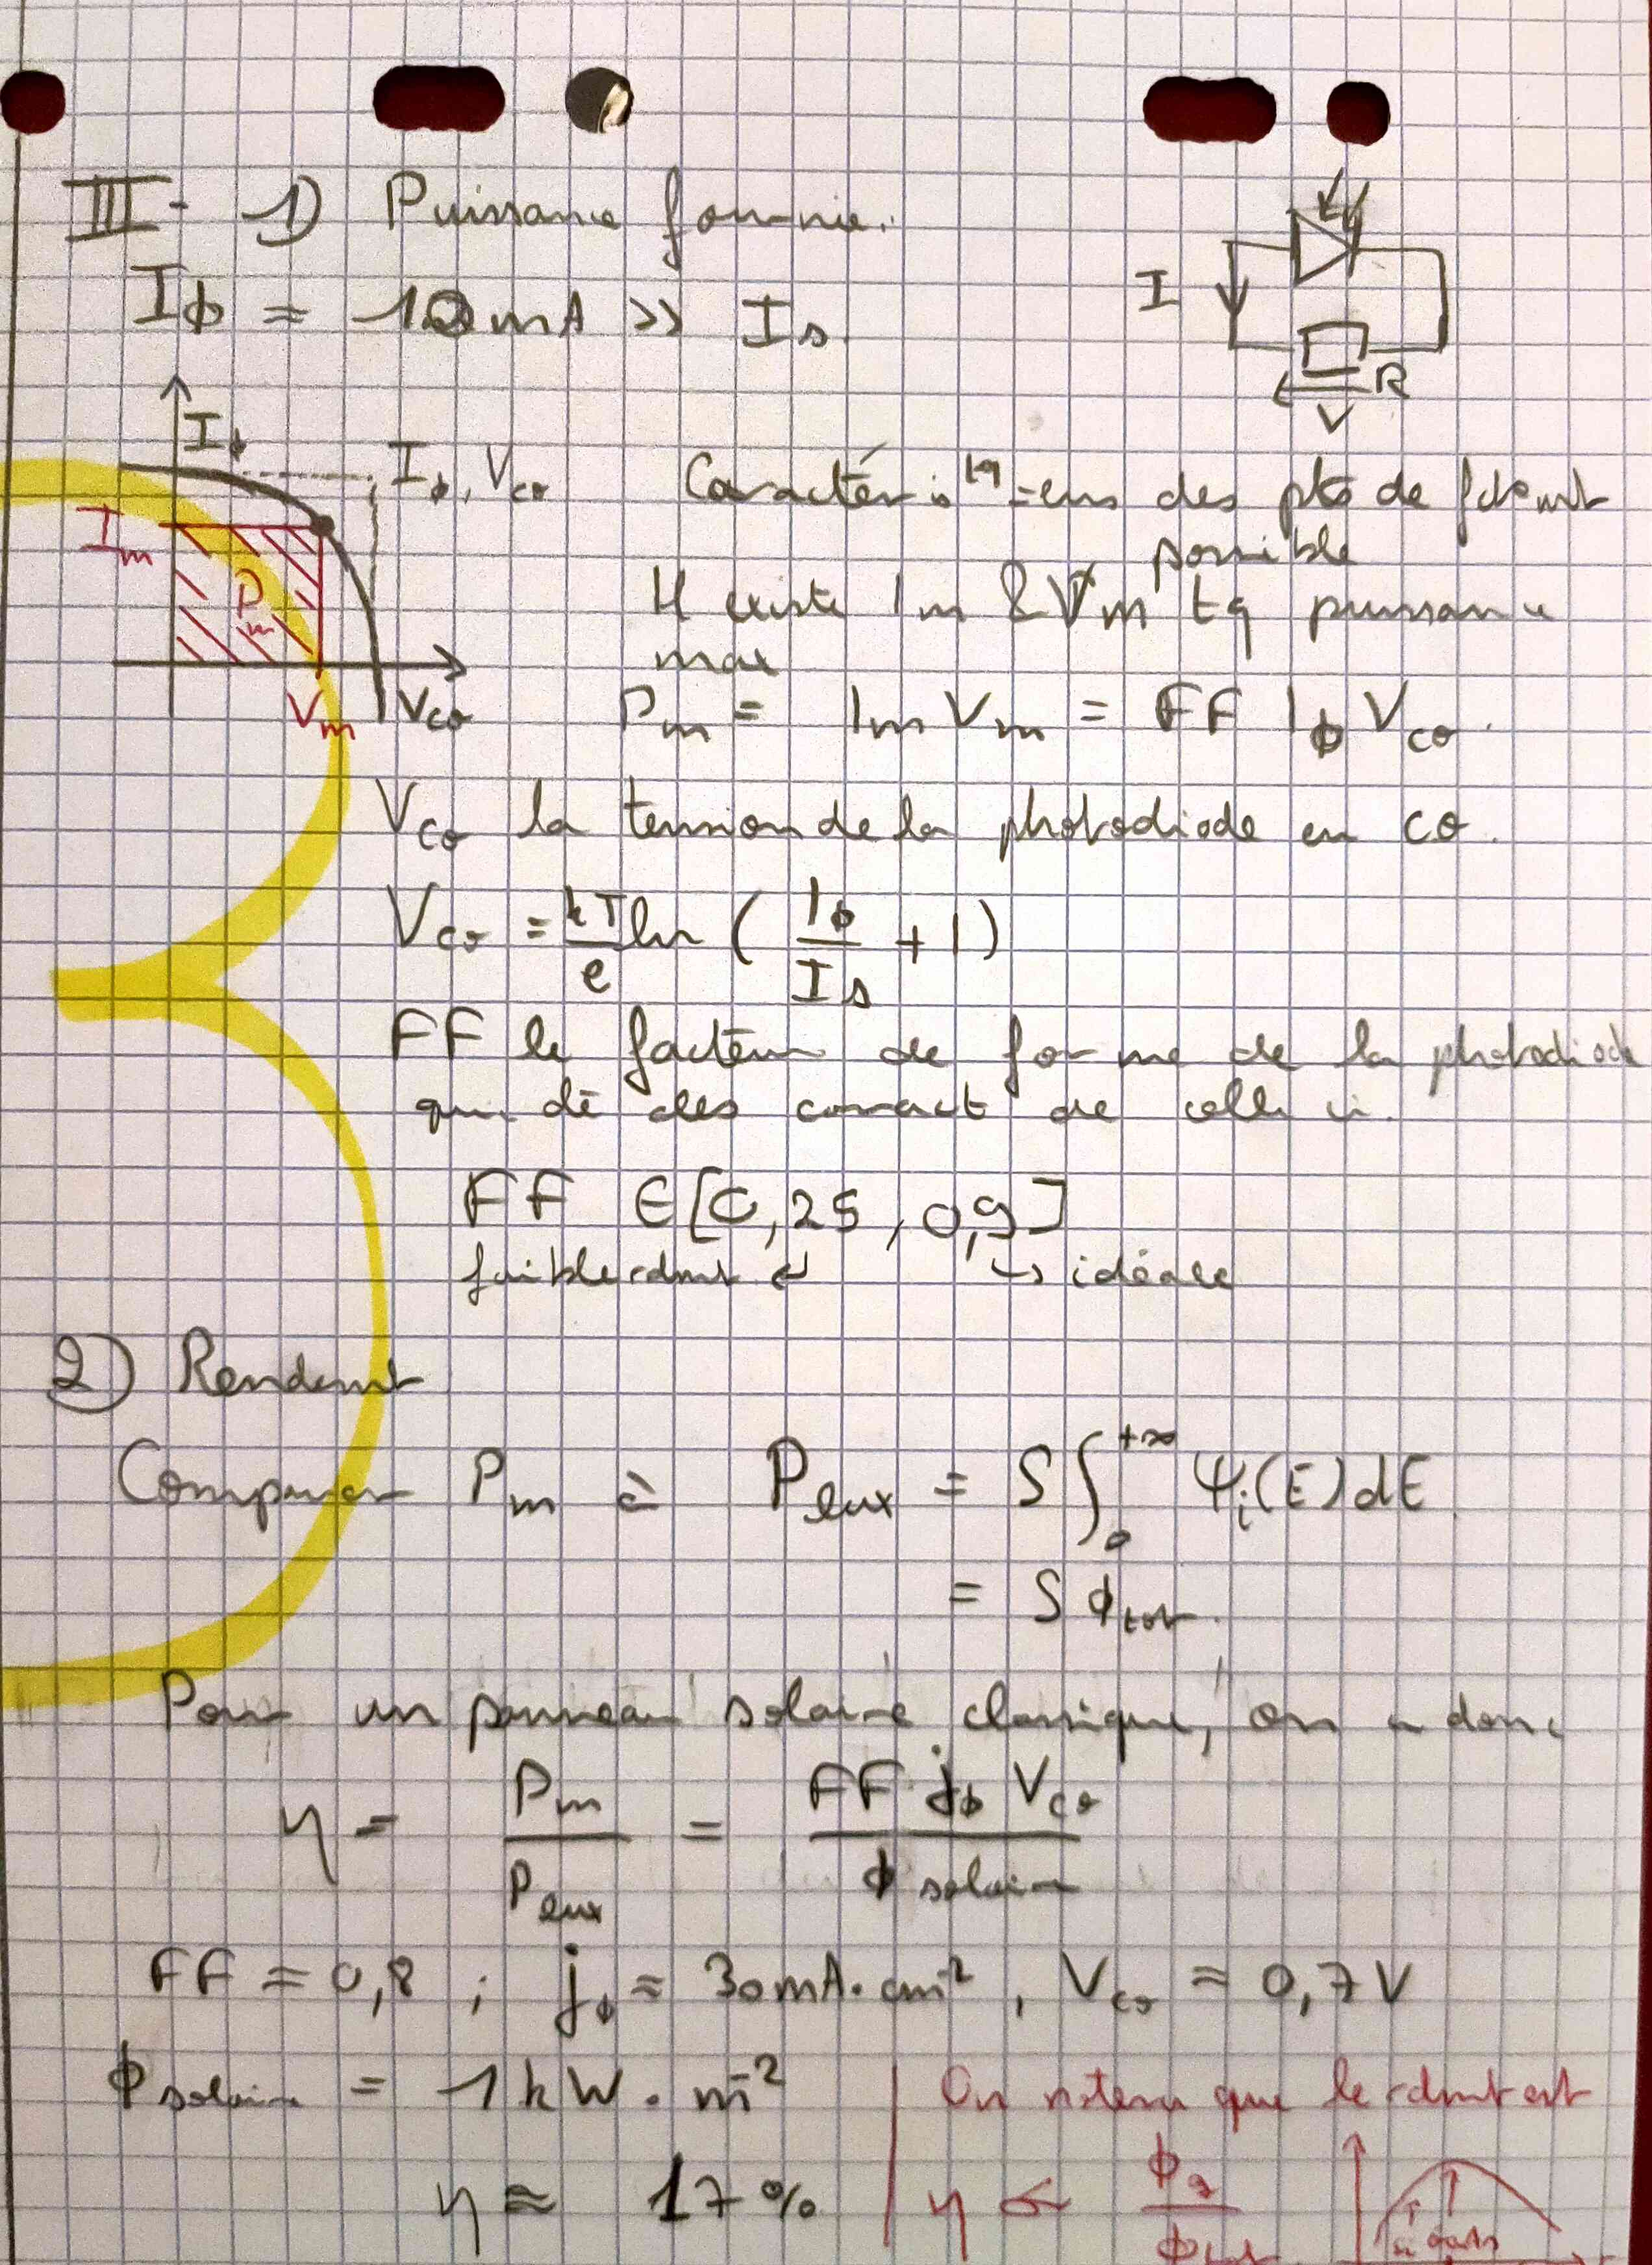 III - 1) Puissance fournie.
Iϕ = 10mA >> Is.
I
R
V
Iϕ
Iϕ, Vco
Im
Pm
Vm Vco
Caractéris tq = ens des pts de fctnemt
possible
Il existe Im & Vm tq puissance
max
Pm = Im Vm = FF Iϕ Vco.
Vco la tension de la photodiode en co.
Vco = kT/e ln ( Iϕ/Is + 1)
FF le facteur de forme de la photodiode
qui dé des caract de celle ci.
FF ∈ [0,25 , 0,9]
faible rdmt ↵ ↳ idéale
2) Rendemt
Comparer Pm à Plux = S ∫₀^+∞ Ψi(E)dE.
= S ϕtot.
Pour un panneau solaire "classique", on a donc
η = Pm/Plux = FF jϕ Vco/ϕ solaire
FF = 0,8 ; jϕ = 30mA.cm⁻², Vco ≈ 0,7V
ϕ solaire = 1kW.m⁻²
On notera que le rdmt est
η ≈ 17%